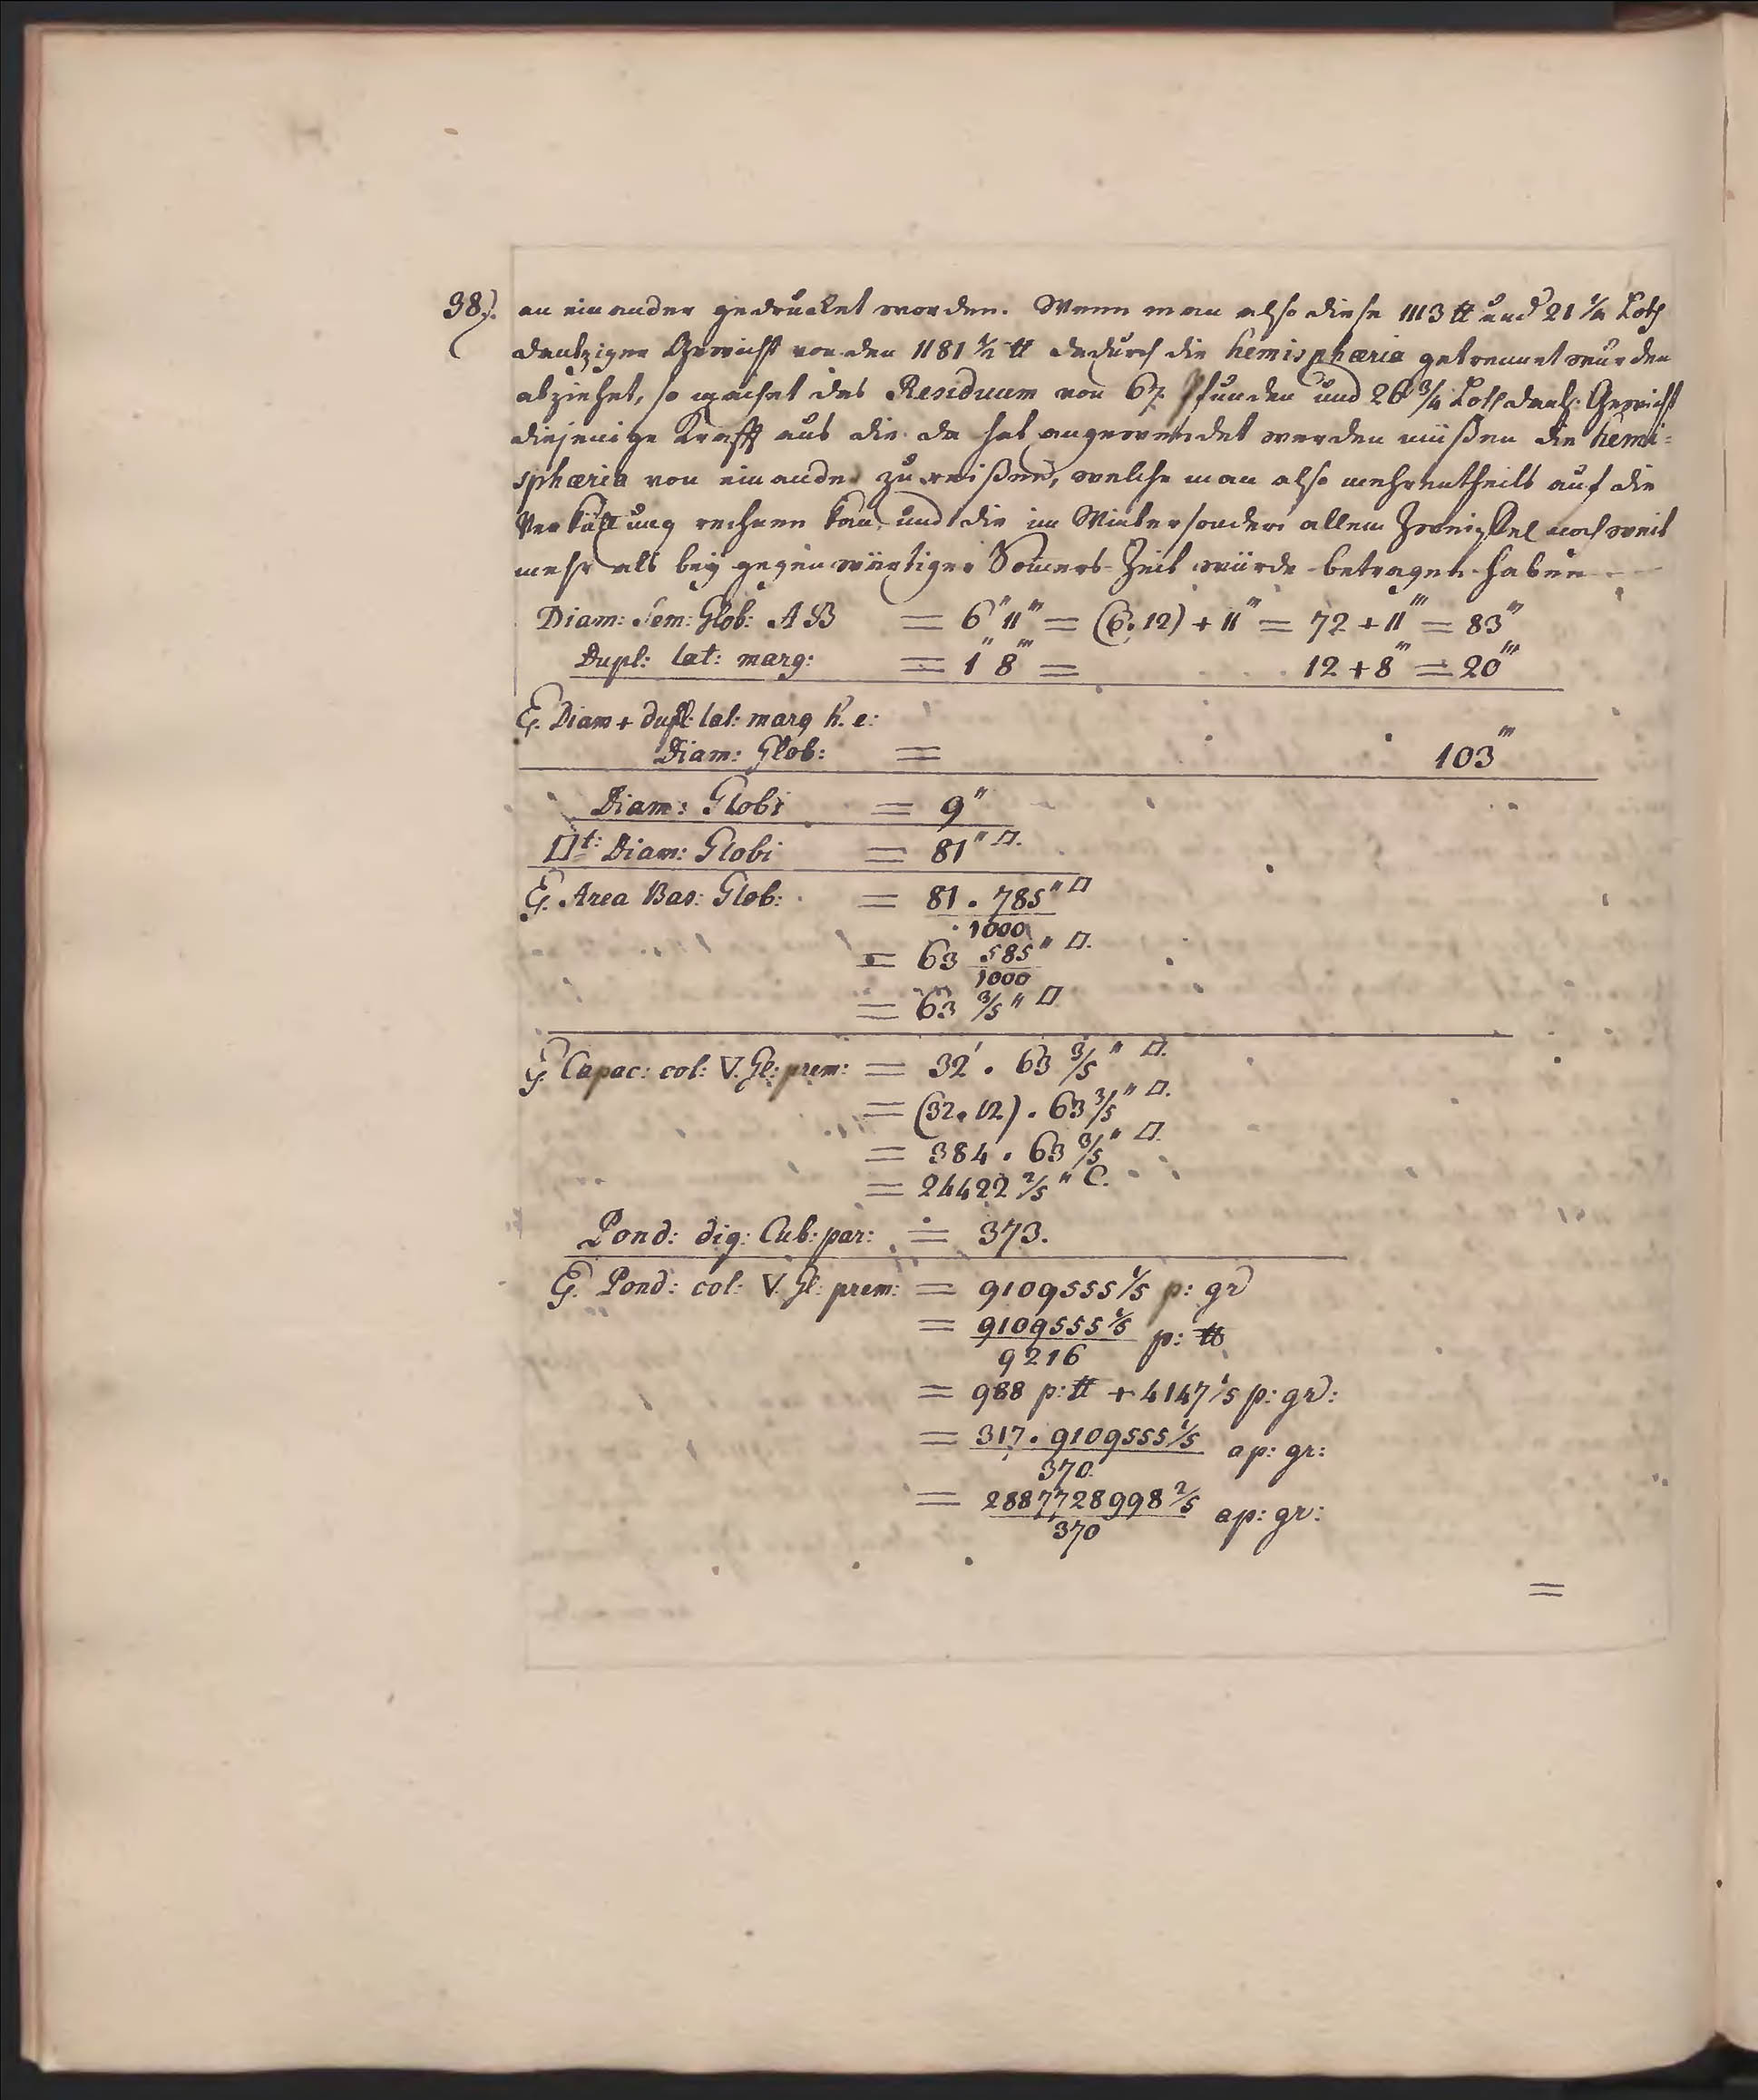 38.). an einander gedrucket worden. Wenn man also diese 1113 ℔ und 21 1/4 Loth
dantziger Gewicht von den 1181 1/2 ℔ dadurch die hemisphæria getrennet wurden
abziehet, so machet das Residuum von 67 Pfunden und 26 3/4 Loth dantz: Gewicht
diejenige Krafft aus die da hat angewendet werden müßen die hemi=
sphæria von einander zu reißen, welche man also mehrentheils auf die
Verküttung rechnen kan, und die im Winter sonder allem Zweiffel noch weit
mehr als beÿ gegenwärtiger Somers-Zeit würde betragen haben
Diam: Sem: Glob: AB = 6" 11''' = (6. 12) + 11''' = 72 + 11''' = 83'''
Dupl: lat: marg: = 1" 8''' = 12 + 8''' = 20'''
E. Diam + dupl: lat: marg h. e:
Diam: Glob: = 103'''
Diam: Globi = 9"
□t: Diam: Globi = 81" □.
E. Area Bas: Glob: = 81 . 785" □
1000
= 63 585" □.
1000
= 63 3/5" □
E. Capac: col: V. Gl: prem: = 32' . 63 3/5" □.
= (32. 12) . 63 3/5" □.
= 384 . 63 3/5" □.
= 24422 2/5" C.
Pond: dig: Cub: par: = 373.
E. Pond: col: V. Gl: prem: = 9109555 1/5 p: gr
= 9109555 1/5 p: ℔
9216
= 988 p: ℔ + 4147 1/5 p: gr:
= 317 . 9109555 1/5 ap: gr:
370.
= 2887728998 2/5 ap: gr:
370
=